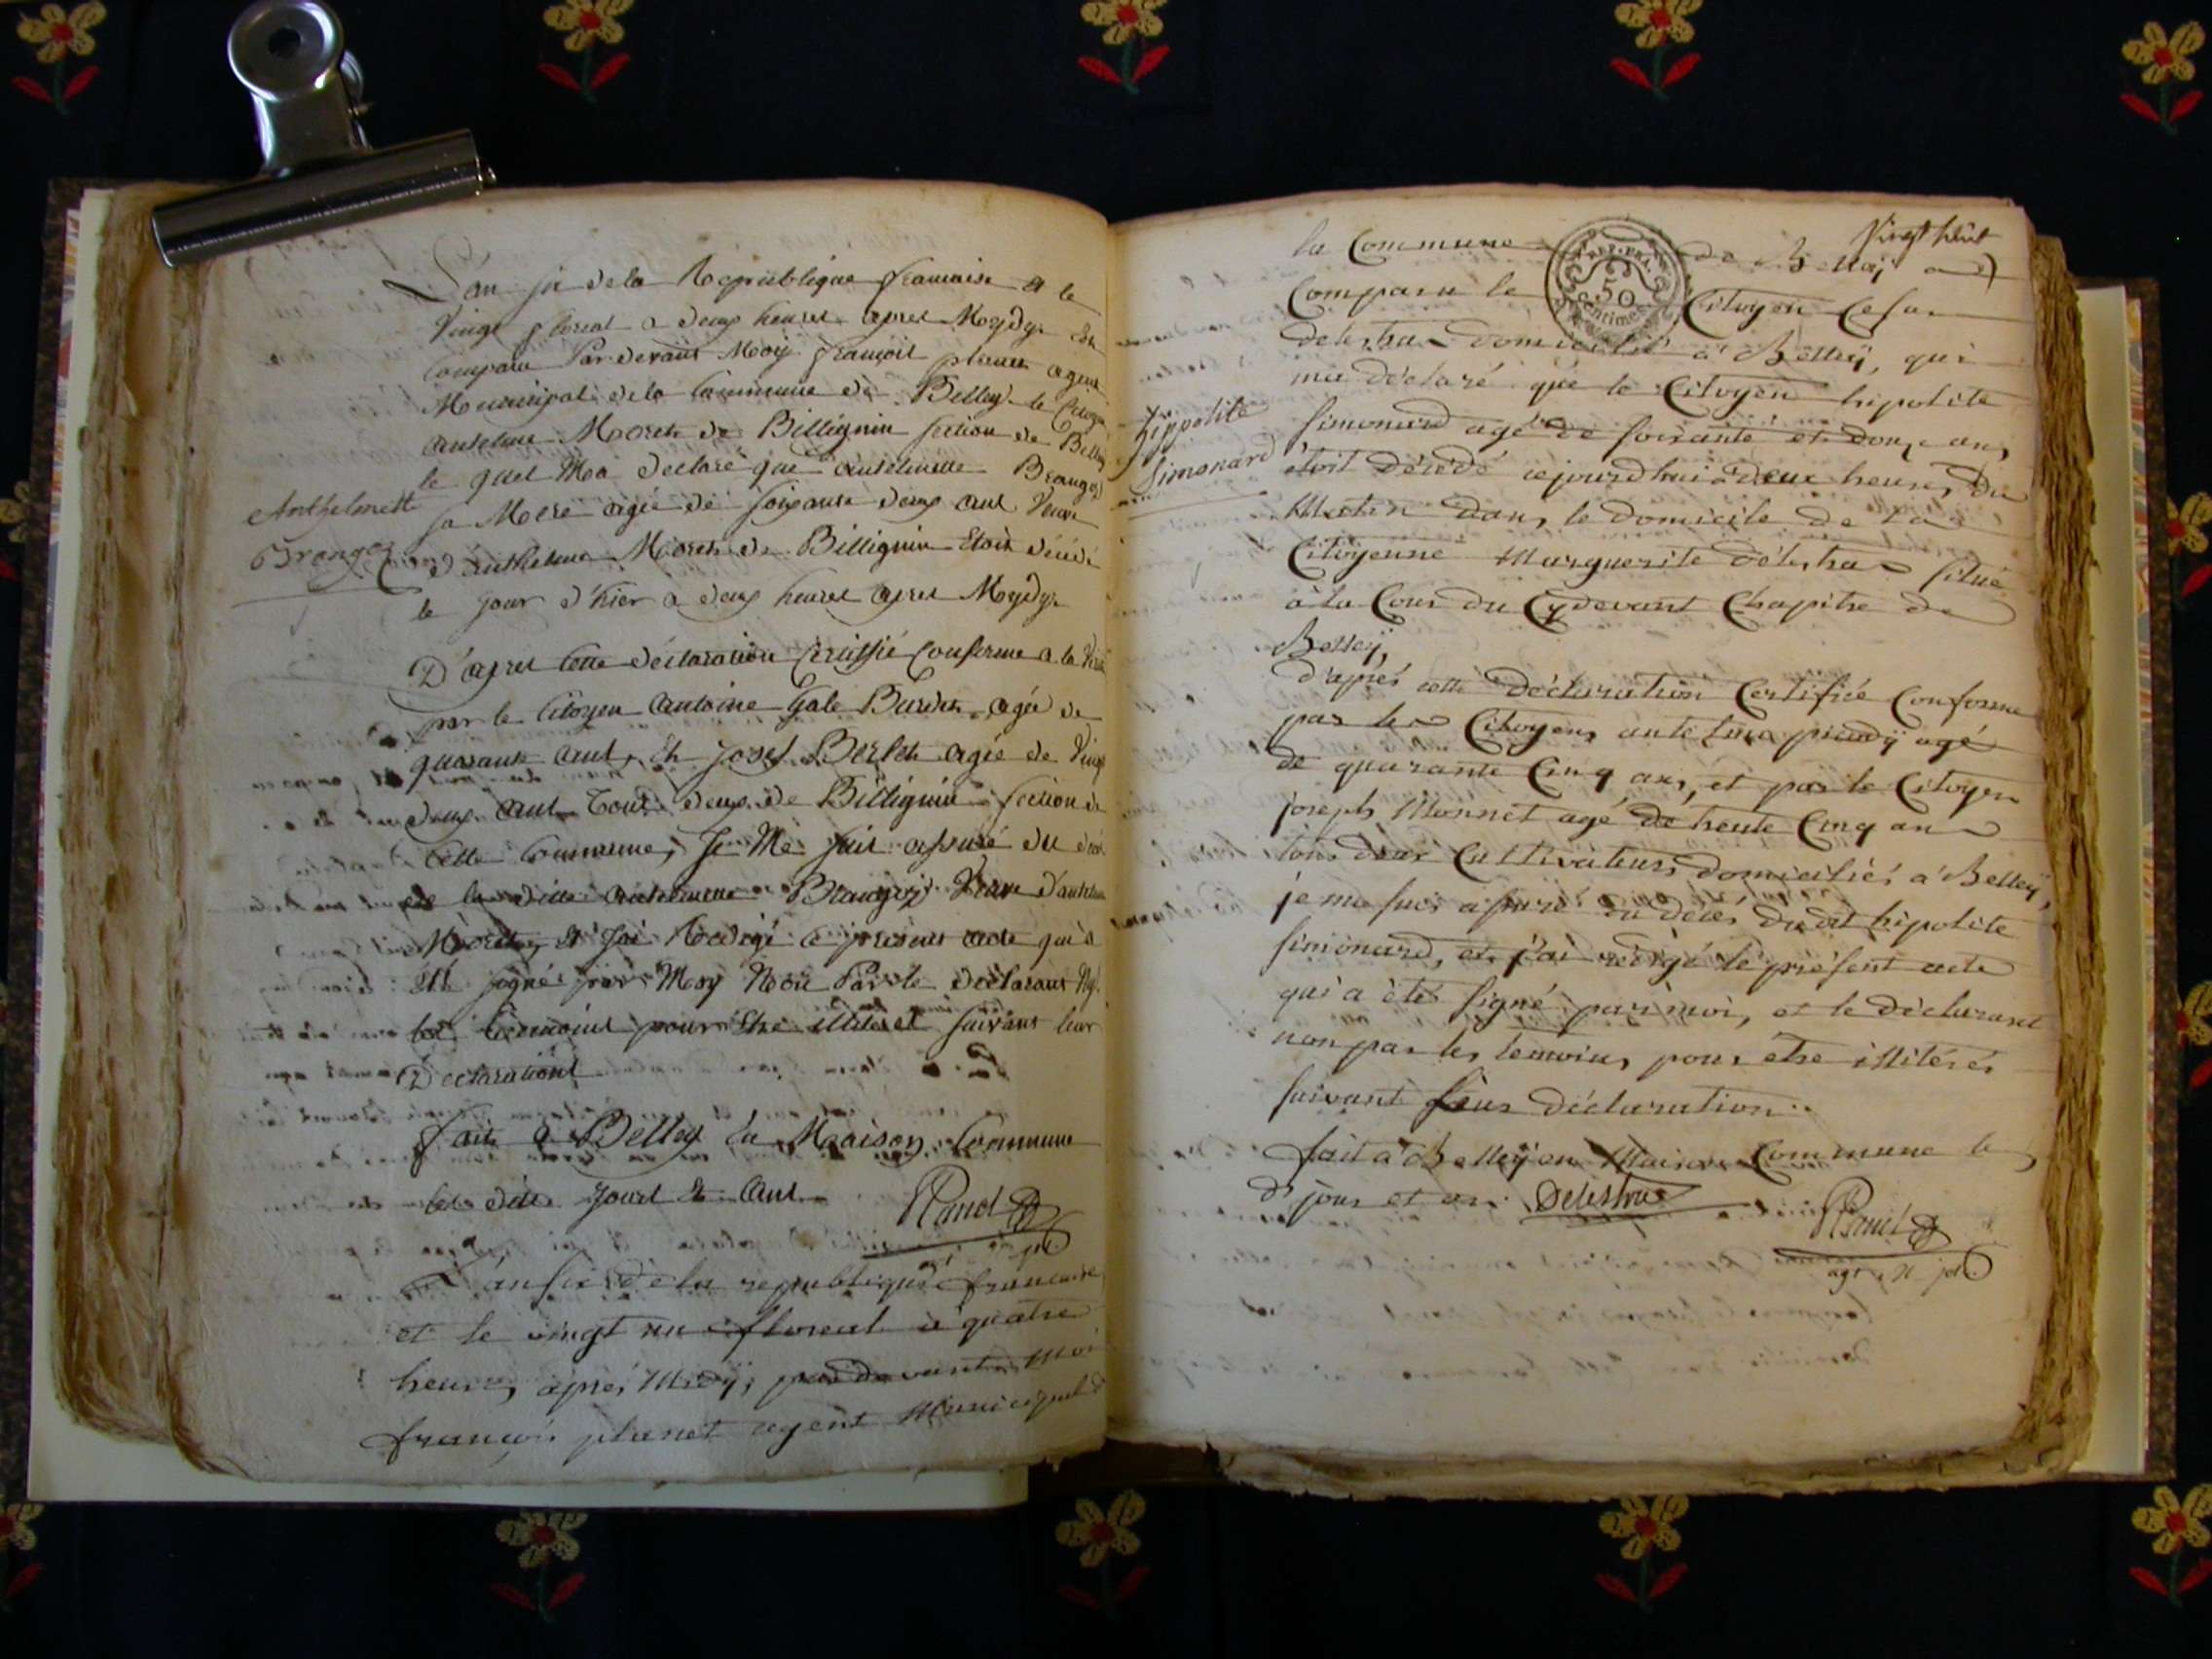 L'an six de la Republique francaise et le
Vingt floreal a deux heures apres Mydy est
comparu Pardevant Moy françois planet agent
Municipal de la Commune de Belley le Citoyen
antelme Moret de Billignin section de Belley
le quel M'a declaré que antelmette Brangoz
sa Mere agée de soixante deux ans Veuve
d'anthelme Moret de Billignin Etoit décédé
le jour d'hier a deux heures apres Mydy
Anthelmette
Brangoz
D'apres Cette déclaration Certiffié Conforme a la
par le Citoyen antoine Gale Burdet agée de
quarante ans, Et josef Berlet agée de Vingt
deux ans Tous deux de Billignin section de
Cette Commune, Je Me suis assuré du
de la ditte antelmette Brangoz Veuve d'antelme
Moret, Et J'ai Redigé le present acte qui a
Eté signé par Moy Non Par le declarant Ny
les temoins pour Etre illiteret suivant leur
Declarations
fait a Belley En Maison Commune
les dits Jours Et Ans
Planet
L'an six de la republique francaise
et le vingt un floreal a quatre
heures après Midÿ, par devant Moi
françois planet agent Municipal d
Vingt huit
la Commune de Belleÿ a
Comparu le Citoyen Cesar
REP. FRA.
50
Centimes
delestra domicilié a Belleÿ, qui
ma déclaré que le Citoyen hipolite
Simonard agé de soixante et douze ans
étoit décédé cejourdhui a deux heures du
Hippolite
Simonard
Matin dans le domicile de la
Citoyenne Marguerite délestra situé
à la Cour du Cydevant Chapitre de
Belleÿ,
d'après cette déclaration Certifiée Conforme
par les Citoyens antelme agé
de quarante Cinq ans, et par le Citoyen
joseph Monnet agé de trente Cinq ans
tous deux Cultivateurs domiciliés a Belleÿ,
je me suis assuré du décés dudit hipolite
simonard, et j'ai rédigé le présent acte
qui a été signé par moi, et le déclarant
non par les temoins pour etre illitérés
suivant leur déclaration.
fait a Belleÿ en Maison Commune le
d' jour et an. Delestra
Planet
agt